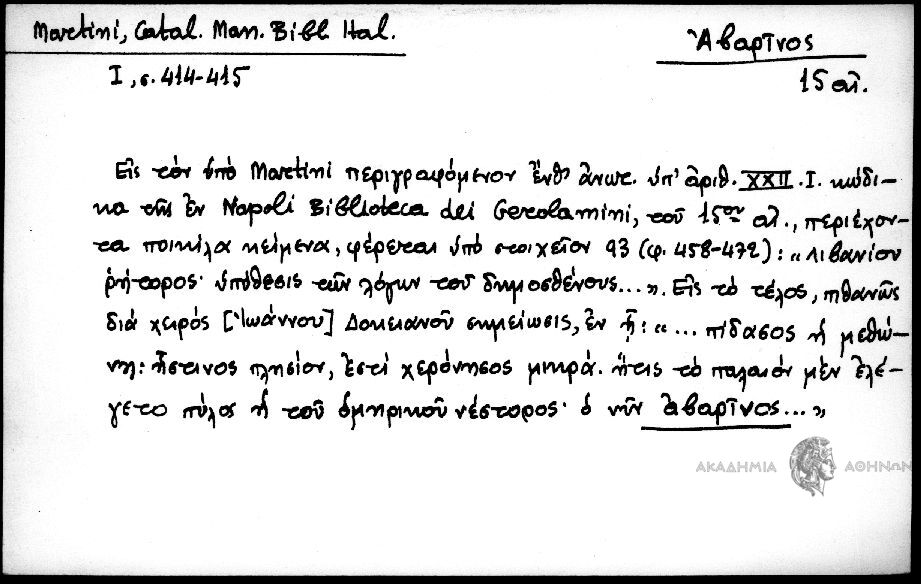 Martini, Catal. Man. Bibl. Ital.
Ἀβαρῖνος
I, σ. 414-415
15 αἰ.
Εἰς τὸν ὑπὸ Martini περιγραφόμενον ἔνθ' ἀνωτ. ὑπ' ἀριθ. XXII. I. κώδι-
κα τῆς ἐν Napoli Biblioteca dei Gerolamini, τοῦ 15ου αἰ., περιέχον-
τα ποικίλα κείμενα, φέρεται ὑπὸ στοιχεῖον 93 (φ. 458-472): "Λιβανίου
ῥήτορος· ὑπόθεσις τῶν λόγων τοῦ δημοσθένους...". Εἰς τὸ τέλος, πιθανῶς
διὰ χειρὸς [Ἰωάννου] Δοκειανοῦ σημείωσις, ἐν ᾗ: "... πίδασος ἡ μεθώ-
νη: ἥστινος πλησίον, ἐστὶ χερόνησος μικρά. ἥτις τὸ παλαιὸν μὲν ἐλέ-
γετο πύλος ἡ τοῦ ὁμηρικοῦ νέστορος· ὁ νῦν ἀβαρῖνος..."
ΑΚΑΔΗΜΙΑ ΑΘΗΝΩΝ